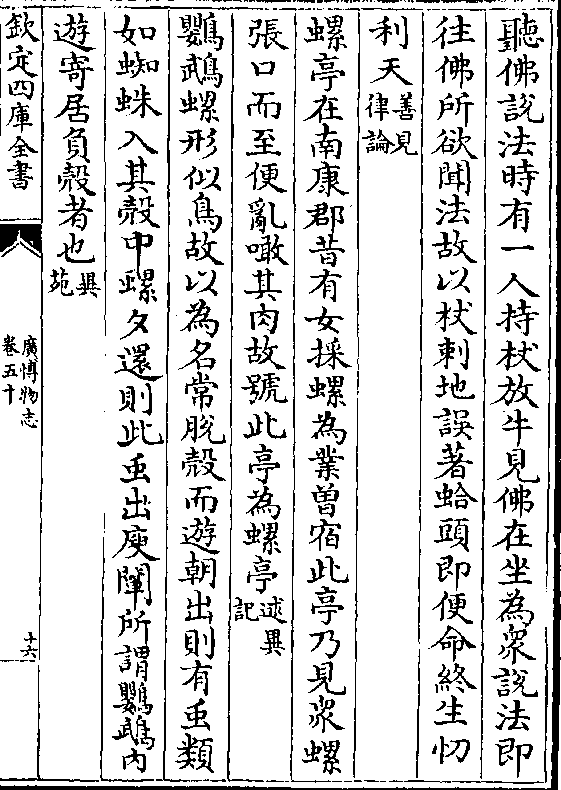 聽佛說法時有一人持杖放牛見佛在坐為衆說法即
往佛所欲聞法故以杖刺地誤著蛤頭即便命終生忉
利天善見律論
螺亭在南康郡昔有女採螺為業曽宿此亭乃見衆螺
張口而至便亂噉其肉故號此亭為螺亭述異記
鸚鵡螺形似鳥故以為名常脫殻而遊朝出則有䖝類
如蜘蛛入其殻中螺夕還則此䖝出庾闡所謂鸚鵡內
遊寄居負殻者也異苑
欽定四庫全書
廣博物志
卷五十
十六